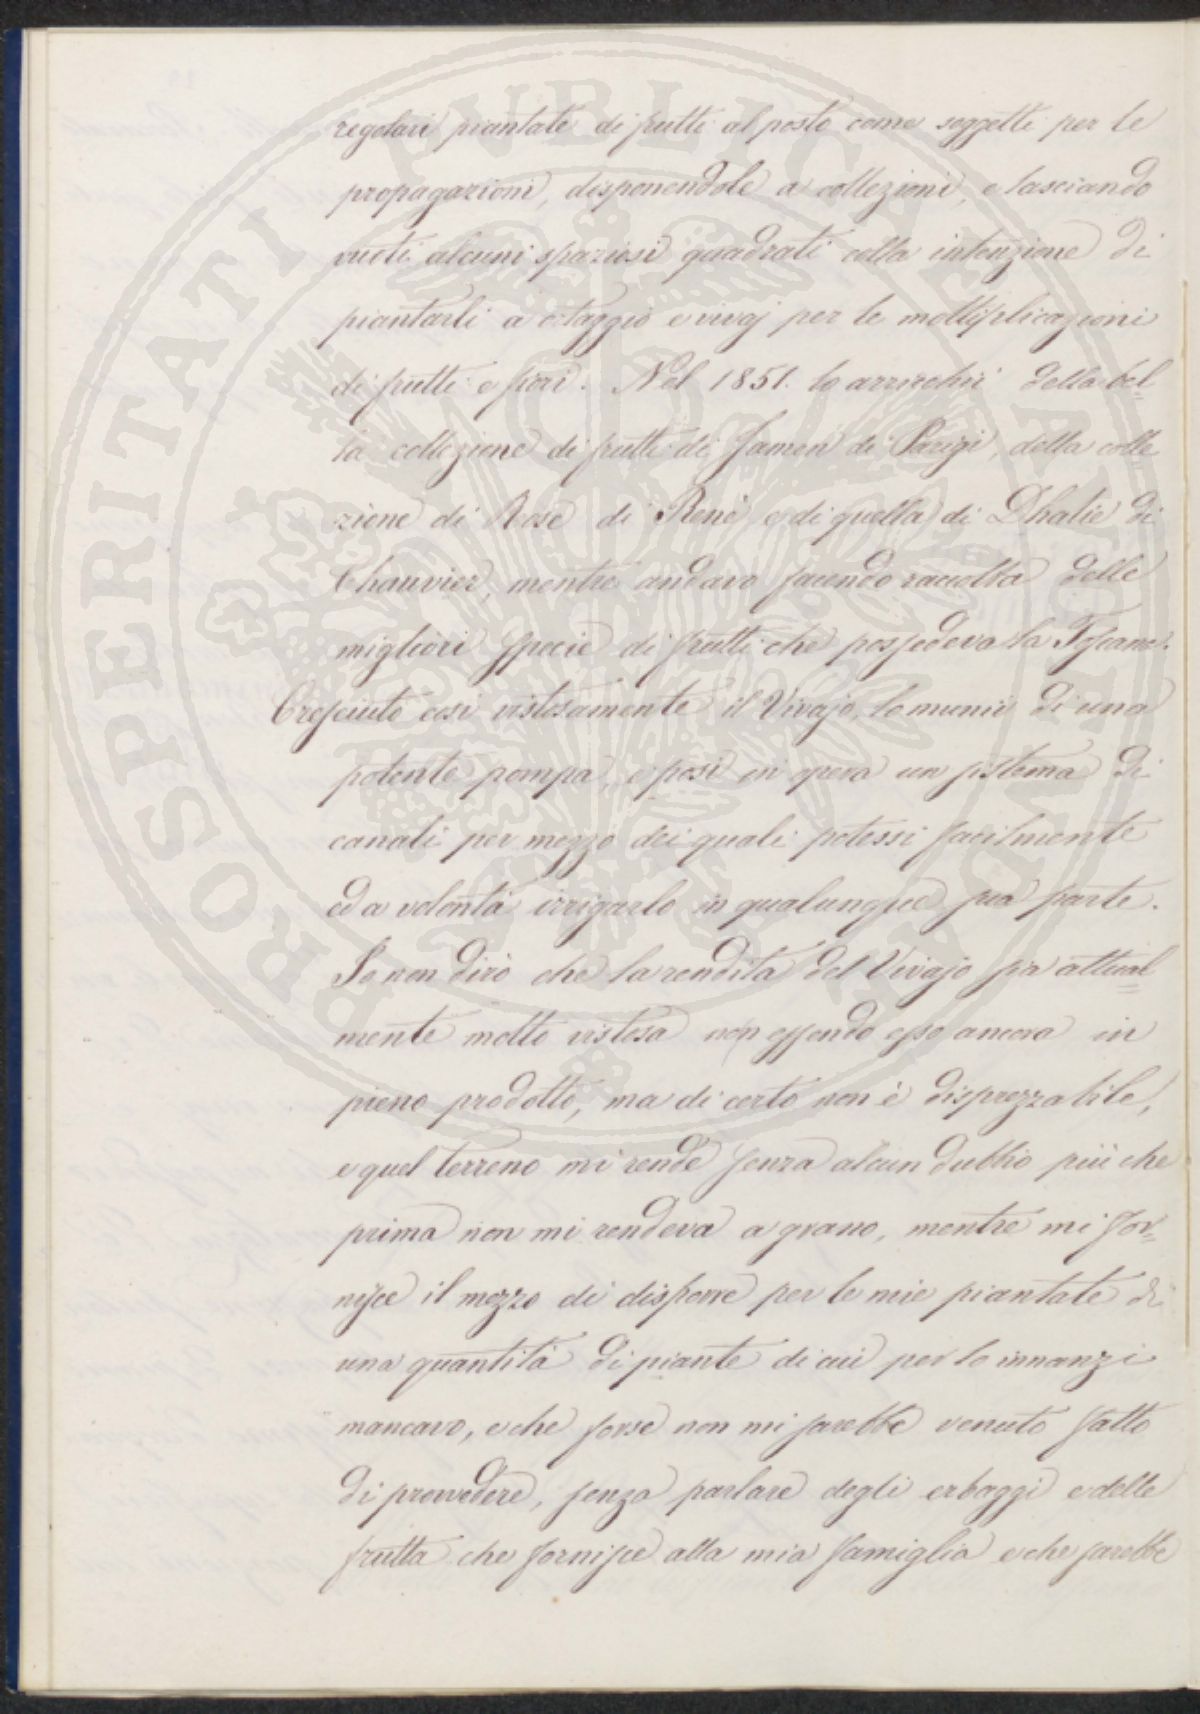 regolari piantate di frutti al posto come soggetti per le
propagazioni, disponendole a collezioni, e lasciando
vuoti alcuni spaziosi quadrati colla intenzione di
piantarli a ortaggio e vivaj per le moltiplicazioni
di frutti e fiori. Nel 1851. lo arricchii della bel
la collezione di frutti di Jamen di Parigi, della colle
zione di Rose di René e di quella di Dhalie di
Chauvier, mentre andavo facendo raccolta delle
migliori specie di frutti che possedeva la Toscana.
Cresciuto così vistosamente il Vivajo, lo munii di una
potente pompa, e posi in opera un sistema di
canali per mezzo dei quali potessi facilmente
ed a volontà irrigarlo in qualunque sua parte.
Io non dirò che la rendita del Vivajo sia attual
mente molto vistosa non essendo esso ancora in
pieno prodotto, ma di certo non è disprezzabile,
e quel terreno mi rende senza alcun dubbio più che
prima non mi rendeva a grano, mentre mi for=
nisce il mezzo di disporre per le mie piantate di
una quantità di piante di cui per lo innanzi
mancavo, e che forse non mi sarebbe venuto fatto
di provvedere, senza parlare degli erbaggi e delle
frutta che fornisce alla mia famiglia e che sarebbe
PROSPERITATI PUBLICAE AUGENDAE